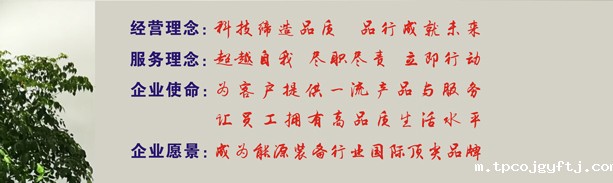 经营理念：科技缔造品质 品行成就未来
服务理念：超越自我 尽职尽责 立即行动
企业使命：为客户提供一流产品与服务
让员工拥有高品质生活水平
企业愿景：成为能源装备行业国际顶尖品牌
m.tpcojgyftj.com